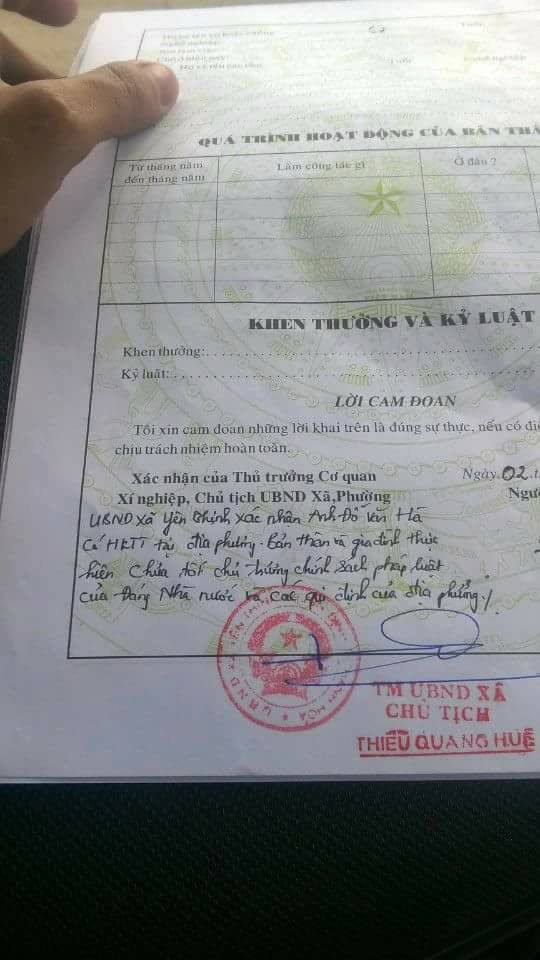 QUÁ TRÌNH HOẠT ĐỘNG CỦA BẢN THÂ
Từ tháng năm đến tháng năm
Làm công tác gì
Ở đâu ?
KHEN THƯỞNG VÀ KỶ LUẬT
Khen thưởng:
Kỷ luật:
LỜI CAM ĐOAN
Tôi xin cam đoan những lời khai trên là đúng sự thực, nếu có
chịu trách nhiệm hoàn toàn.
Xác nhận của Thủ trưởng Cơ quan
Ngày.02.
Xí nghiệp, Chủ tịch UBND Xã,Phường
UBND xã Yên Thịnh xác nhận Anh Đỗ Văn Hà
Có HKTT tại địa phương. Bản thân và gia đình thực
hiện Chưa tốt chủ trương chính sách pháp luật
của Đảng Nhà nước và các qui định của địa phương./
TM UBND XÃ
CHỦ TỊCH
THIỀU QUANG HUỆ